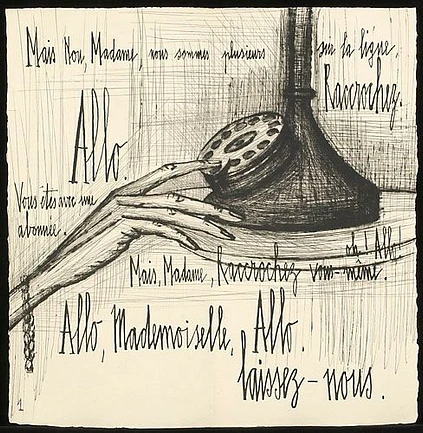 Mais Non, Madame, nous sommes plusieurs sur la ligne.
Raccrochez.
Allo.
Vous êtes avec une
abonnée.
oh! Allo!
Mais, Madame, Raccrochez vous-même.
Allo, Mademoiselle, Allo.
laissez-nous.
1